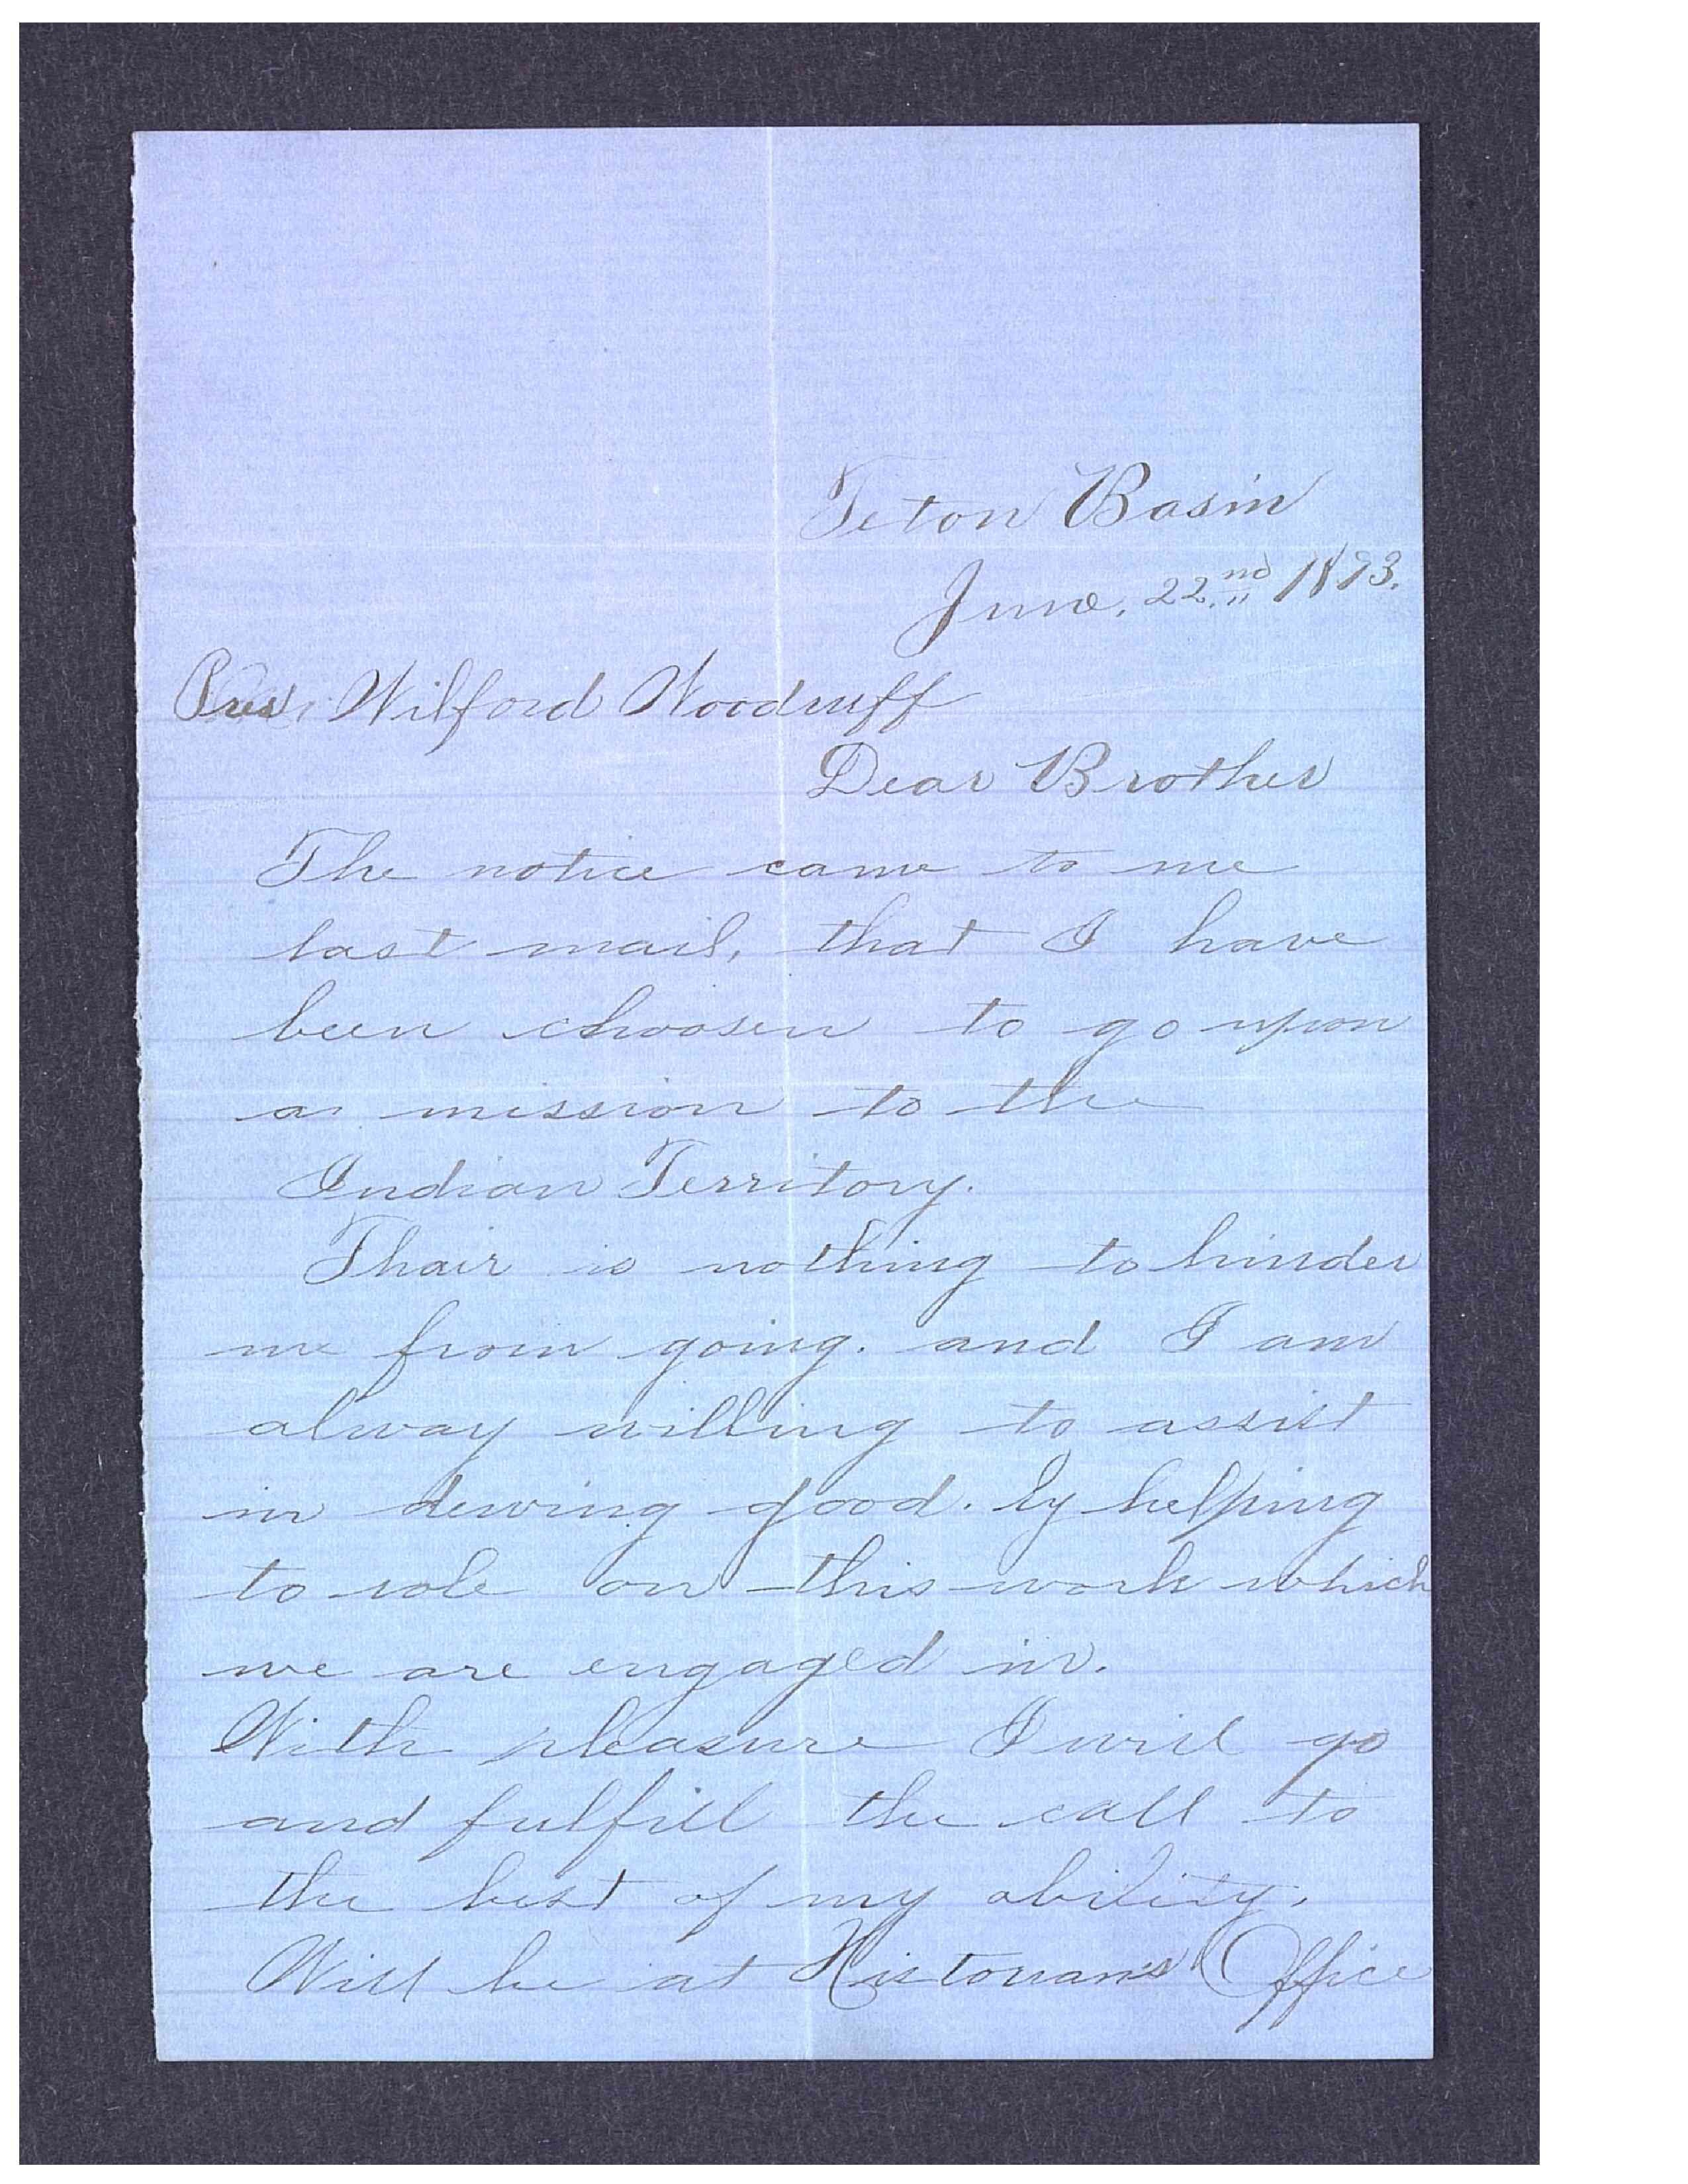 Teton Basin
June, 22nd 1893.
Pres. Wilford Woodruff
Dear Brother
The notice came to me
last mail, that I have
been choosen to go upon
a mission to the
Indian Territory.
Thair is nothing to hinder
me from going. and I am
alway willing to assist
in dewing good. by helping
to role on this work which
we are engaged in.
With pleasure I will go
and fulfill the call to
the best of my ability.
Will be at Historian's Office